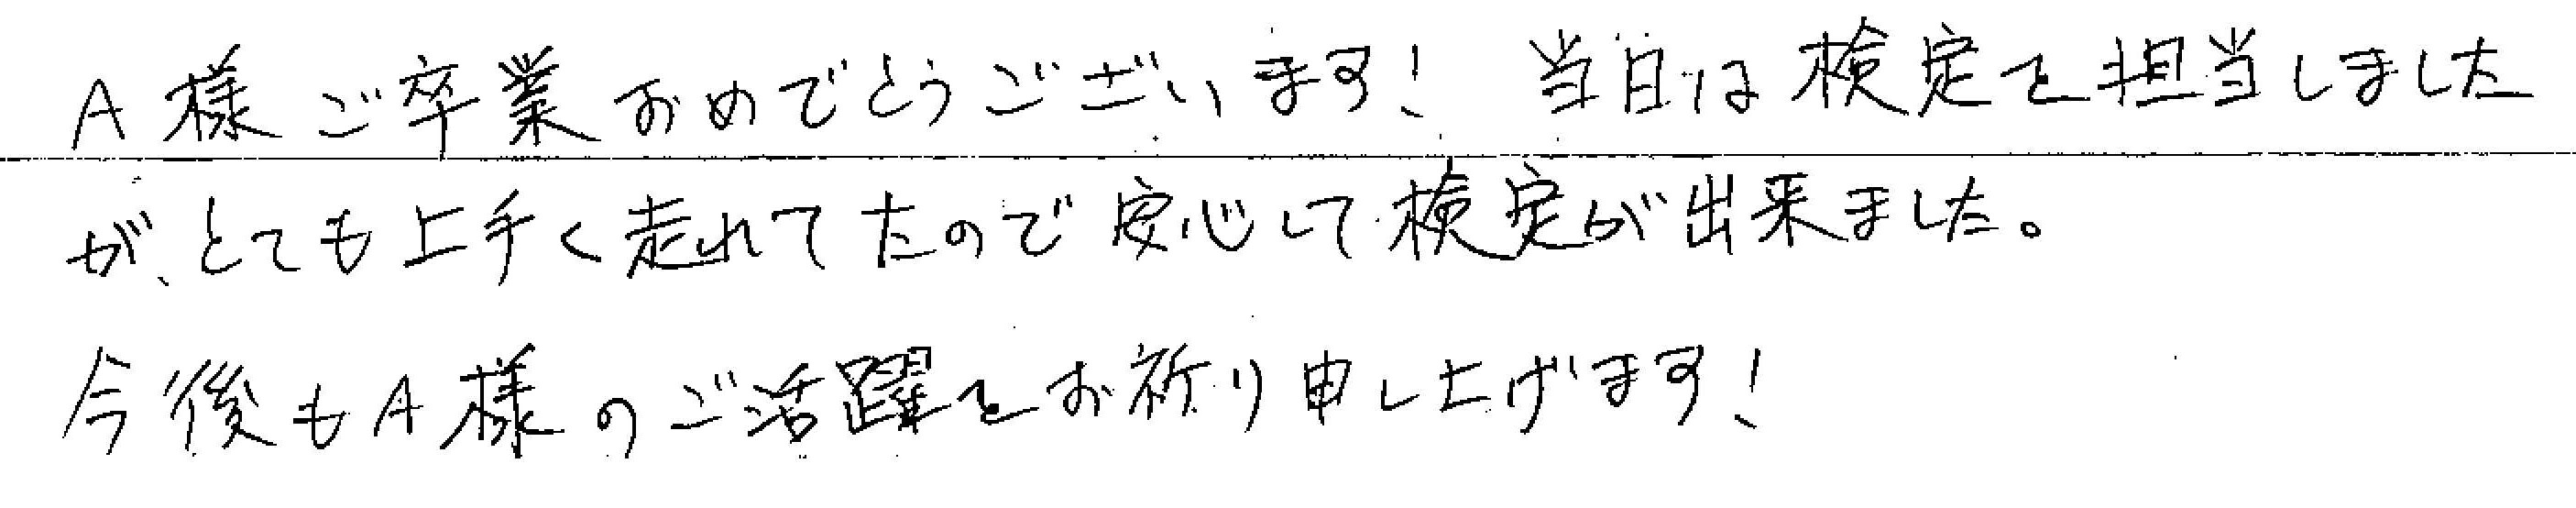 A様ご卒業おめでとうございます! 当日は検定を担当しました
が、とても上手く走れてたので安心して検定が出来ました。
今後もA様のご活躍をお祈り申し上げます!